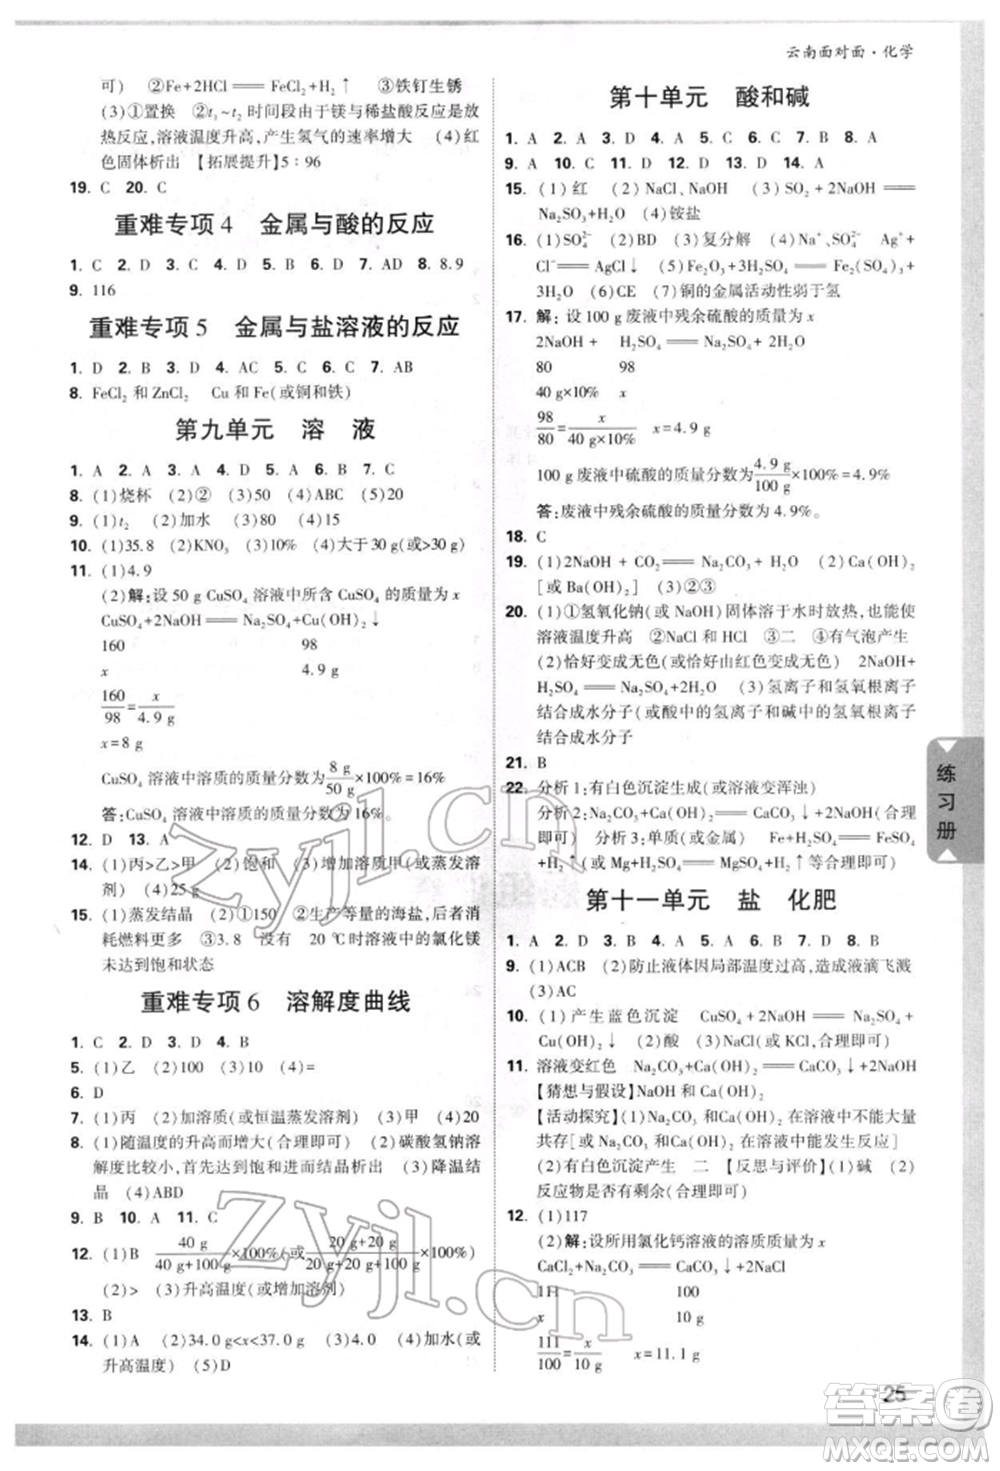 云南面对面·化学
可) ②Fe+2HCl══FeCl₂+H₂↑ ③铁钉生锈
(3)①置换 ②t₁~t₂ 时间段由于镁与稀盐酸反应放
热反应,溶液温度升高,产生氢气的速率增大 (4)红
色固体析出 【拓展提升】5∶96
19. C 20. C
重难专项4 金属与酸的反应
1. C 2. D 3. D 4. C 5. A 6. D 7. AD 8. 8.9
9. 116
重难专项5 金属与盐溶液的反应
1. D 2. B 3. D 4. AC 5. C 6. C 7. AB
8. FeCl₂ 和 ZnCl₂ Cu 和 Fe(或铜和铁)
第九单元 溶 液
1. A 2. A 3. A 4. A 5. D 6. A 7. B
8. (1)烧杯 (2)② (3)50 (4)ABC (5)20
9. (1)t₂ (2)加水 (3)80 (4)15
10. (1)35.8 (2)KNO₃ (3)10% (4)大于30 g(或>30 g)
11. (1)4.9
(2)解:设 50 g CuSO₄ 溶液中所含 CuSO₄ 的质量为 x
CuSO₄+2NaOH══Na₂SO₄+Cu(OH)₂↓
160 98
x 4.9 g
160/98=x/4.9 g
x=8 g
CuSO₄ 溶液中溶质的质量分数为 8 g/50 g×100%=16%
答:CuSO₄ 溶液中溶质的质量分数为 16%。
12. D 13. A
14. (1)丙>乙>甲 (2)饱和 (3)增加溶质甲(或蒸发溶
剂) (4)C
15. (1)蒸发结晶 (2)①150 ②生产等量的海盐,后者消
耗燃料更多 ③3.8 没有 20 ℃时溶液中的氯化镁
未达到饱和状态
重难专项6 溶解度曲线
1. C 2. D 3. D 4. B
5. (1)乙 (2)100 (3)20 (4)=
6. D
7. (1)丙 (2)加溶质(或恒温蒸发溶剂) (3)甲 (4)20
8. (1)随温度的升高而增大(合理即可) (2)碳酸氢钠溶
解度比较小,首先达到饱和进而结晶析出 (3)降温结
晶 (4)ABD
9. B 10. A 11. C
12. (1)B 40 g/40 g+100 g×100%(或20 g+20 g/20 g+20 g+100 g×100%)
(2)> (3)升高温度(或增加溶剂)
13. B
14. (1)A (2)34.0 g<x<37.0 g (3)72 (4)加水(或
升高温度) (5)D
第十单元 酸和碱
1. A 2. A 3. D 4. A 5. C 6. C 7. B 8. A
9. A 10. C 11. D 12. D 13. D 14. D
15. (1)红 (2)NaCl、NaOH (3)SO₂+2NaOH══
Na₂SO₃+H₂O (4)铵盐
16. (1)SO₄²⁻ (2)BD (3)复分解 (4)Na⁺、SO₄²⁻ Ag⁺+
Cl⁻══AgCl↓ (5)Fe₂O₃+3H₂SO₄══Fe₂(SO₄)₃+
3H₂O (6)CE (7)铜的金属活动性弱于氢
17. 解:设 100 g 废液中残余硫酸的质量为 x
2NaOH+H₂SO₄══Na₂SO₄+2H₂O
80 98
40 g×10% x
98/80=x/40 g×10% x=4.9 g
100 g 废液中硫酸的质量分数为4.9 g/100 g×100%=4.9%
答:废液中残余硫酸的质量分数为 4.9%。
18. C
19. (1)2NaOH+CO₂══Na₂CO₃+H₂O (2)Ca(OH)₂
[或Ba(OH)₂] (3)②③
20. (1)①氢氧化钠(或NaOH)固体溶于水时放热,也能使
溶液温度升高 ②NaCl 和 HCl ③二 ④有气泡产生
(2)恰好变成无色(或恰好由红色变成无色) 2NaOH+
H₂SO₄══Na₂SO₄+2H₂O (3)氢离子和氢氧根离子
结合成水分子(或酸中的氢离子和碱中的氢氧根离子
结合成水分子)
21. B
22. 分析1:有白色沉淀生成(或溶液变浑浊)
分析2:Na₂CO₃+Ca(OH)₂══CaCO₃↓+2NaOH(合理
即可) 分析3:单质(或金属) Fe+H₂SO₄══FeSO₄
+H₂↑(或Mg+H₂SO₄══MgSO₄+H₂↑等合理即可)
第十一单元 盐 化肥
1. A 2. D 3. A 4. A 5. A 6. D 7. D 8. B
9. (1)ACB (2)防止液体因局部温度过高,造成液滴飞溅
(3)AC
10. (1)产生蓝色沉淀 CuSO₄+2NaOH══Na₂SO₄+
Cu(OH)₂↓ (2)酸 (3)NaCl(或 KCl,合理即可)
11. 溶液变红色 Na₂CO₃+Ca(OH)₂══CaCO₃↓+2NaOH
【猜想与假设】NaOH 和 Ca(OH)₂
【活动探究】(1)Na₂CO₃ 和Ca(OH)₂ 在溶液中不能大量
共存[或 Na₂CO₃ 和Ca(OH)₂ 在溶液中能发生反应]
(2)有白色沉淀产生 二 【反思与评价】(1)碱 (2)
反应物是否有剩余(合理即可)
12. (1)117
(2)解:设所用氯化钙溶液的溶质质量为 x
CaCl₂+Na₂CO₃══CaCO₃↓+2NaCl
111 100
x 10 g
111/100=x/10 g x=11.1 g
练习册
25
答案圈
MXQE.COM
zyjl.cn
zyjl.cn